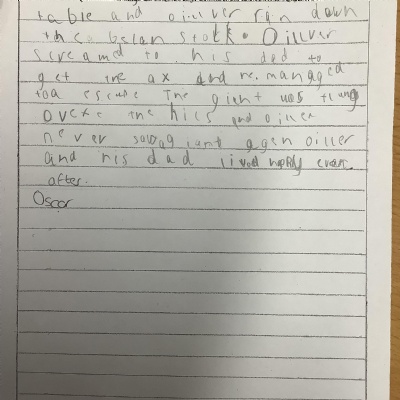 table and oillver run down
the bean stolk. Oillver
screamed to his dad to
get the ax and he managed
too escupe The gient was flung
over the hills and oillver
never sowa giant agen oillver
and his dad lived happly ever
after.
Oscar